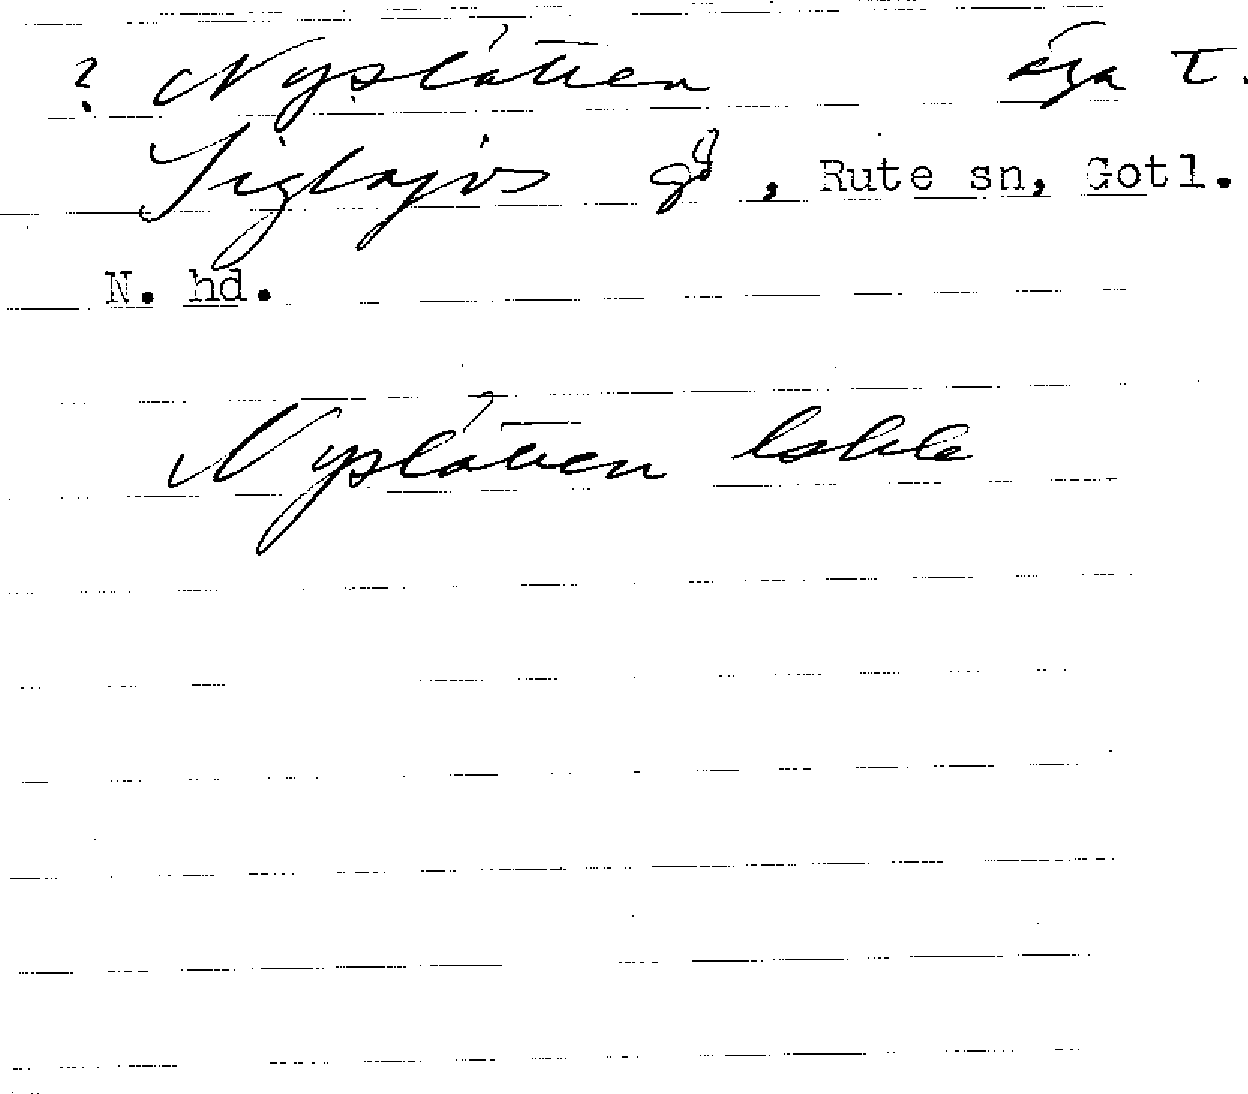 ? Nyslåtten äga T.
Siglajvs gd, Rute sn, Gotl.
N. hd.
Nyslåtten